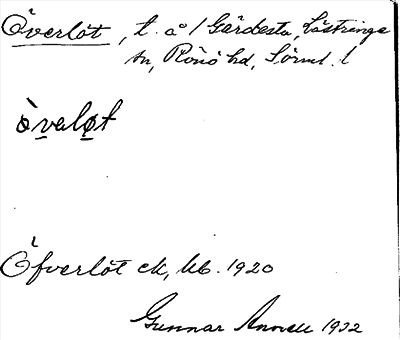 Överlöt, t. å /Gärdesta, Lästringe
sn, Rönö hd, Sörml. /
òvaløt
Öfverlöt ek, kb. 1920
Gunnar Annell 1932